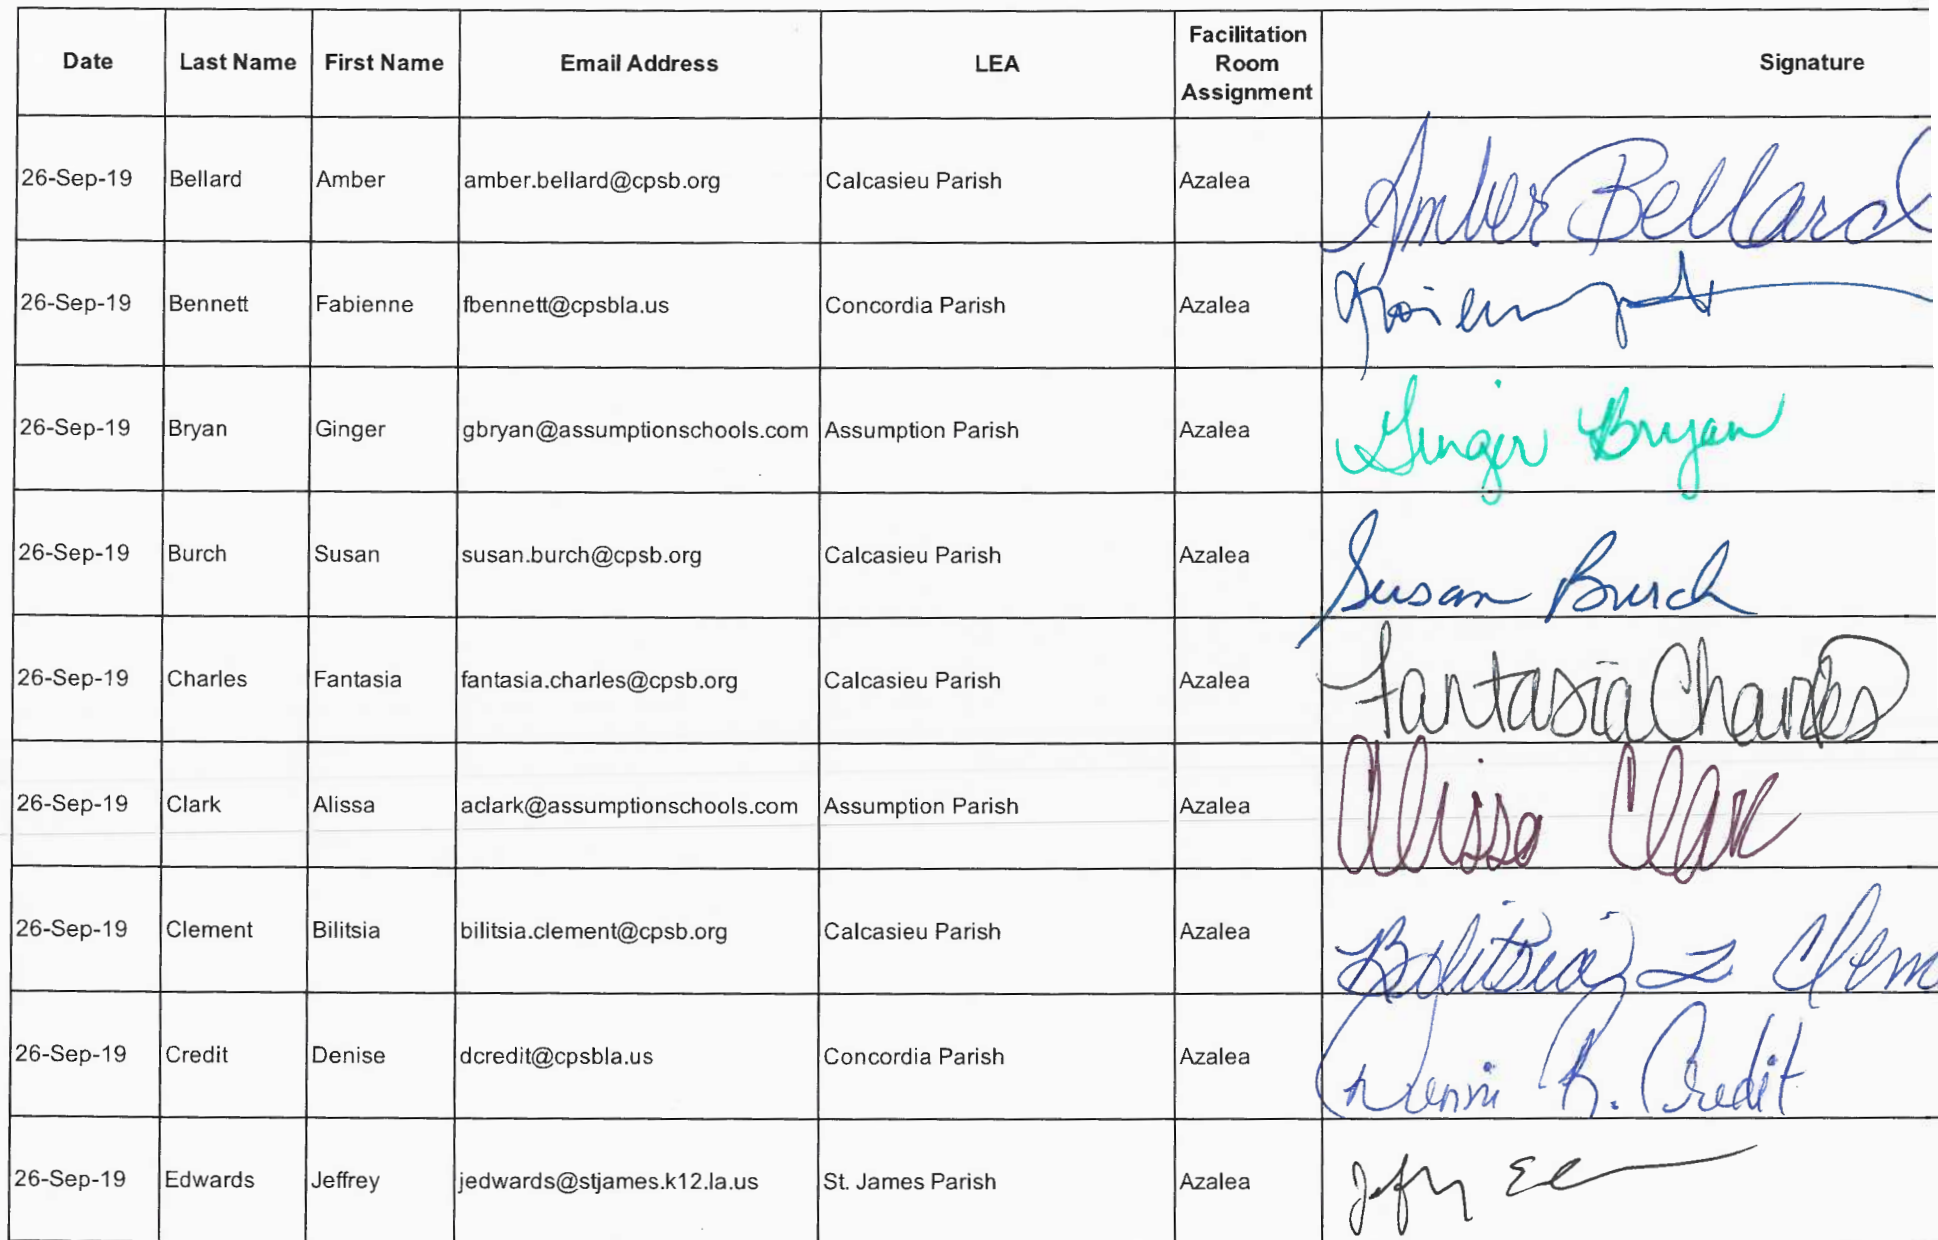 Date Last Name First Name Email Address LEA Facilitation Room Assignment Signature
26-Sep-19 Bellard Amber amber.bellard@cpsb.org Calcasieu Parish Azalea Amber Bellard
26-Sep-19 Bennett Fabienne fbennett@cpsbla.us Concordia Parish Azalea
26-Sep-19 Bryan Ginger gbryan@assumptionschools.com Assumption Parish Azalea Ginger Bryan
26-Sep-19 Burch Susan susan.burch@cpsb.org Calcasieu Parish Azalea Susan Burch
26-Sep-19 Charles Fantasia fantasia.charles@cpsb.org Calcasieu Parish Azalea Fantasia Charles
26-Sep-19 Clark Alissa aclark@assumptionschools.com Assumption Parish Azalea Alissa Clark
26-Sep-19 Clement Bilitsia bilitsia.clement@cpsb.org Calcasieu Parish Azalea Bilitsia L Clem
26-Sep-19 Credit Denise dcredit@cpsbla.us Concordia Parish Azalea Denise R. Credit
26-Sep-19 Edwards Jeffrey jedwards@stjames.k12.la.us St. James Parish Azalea